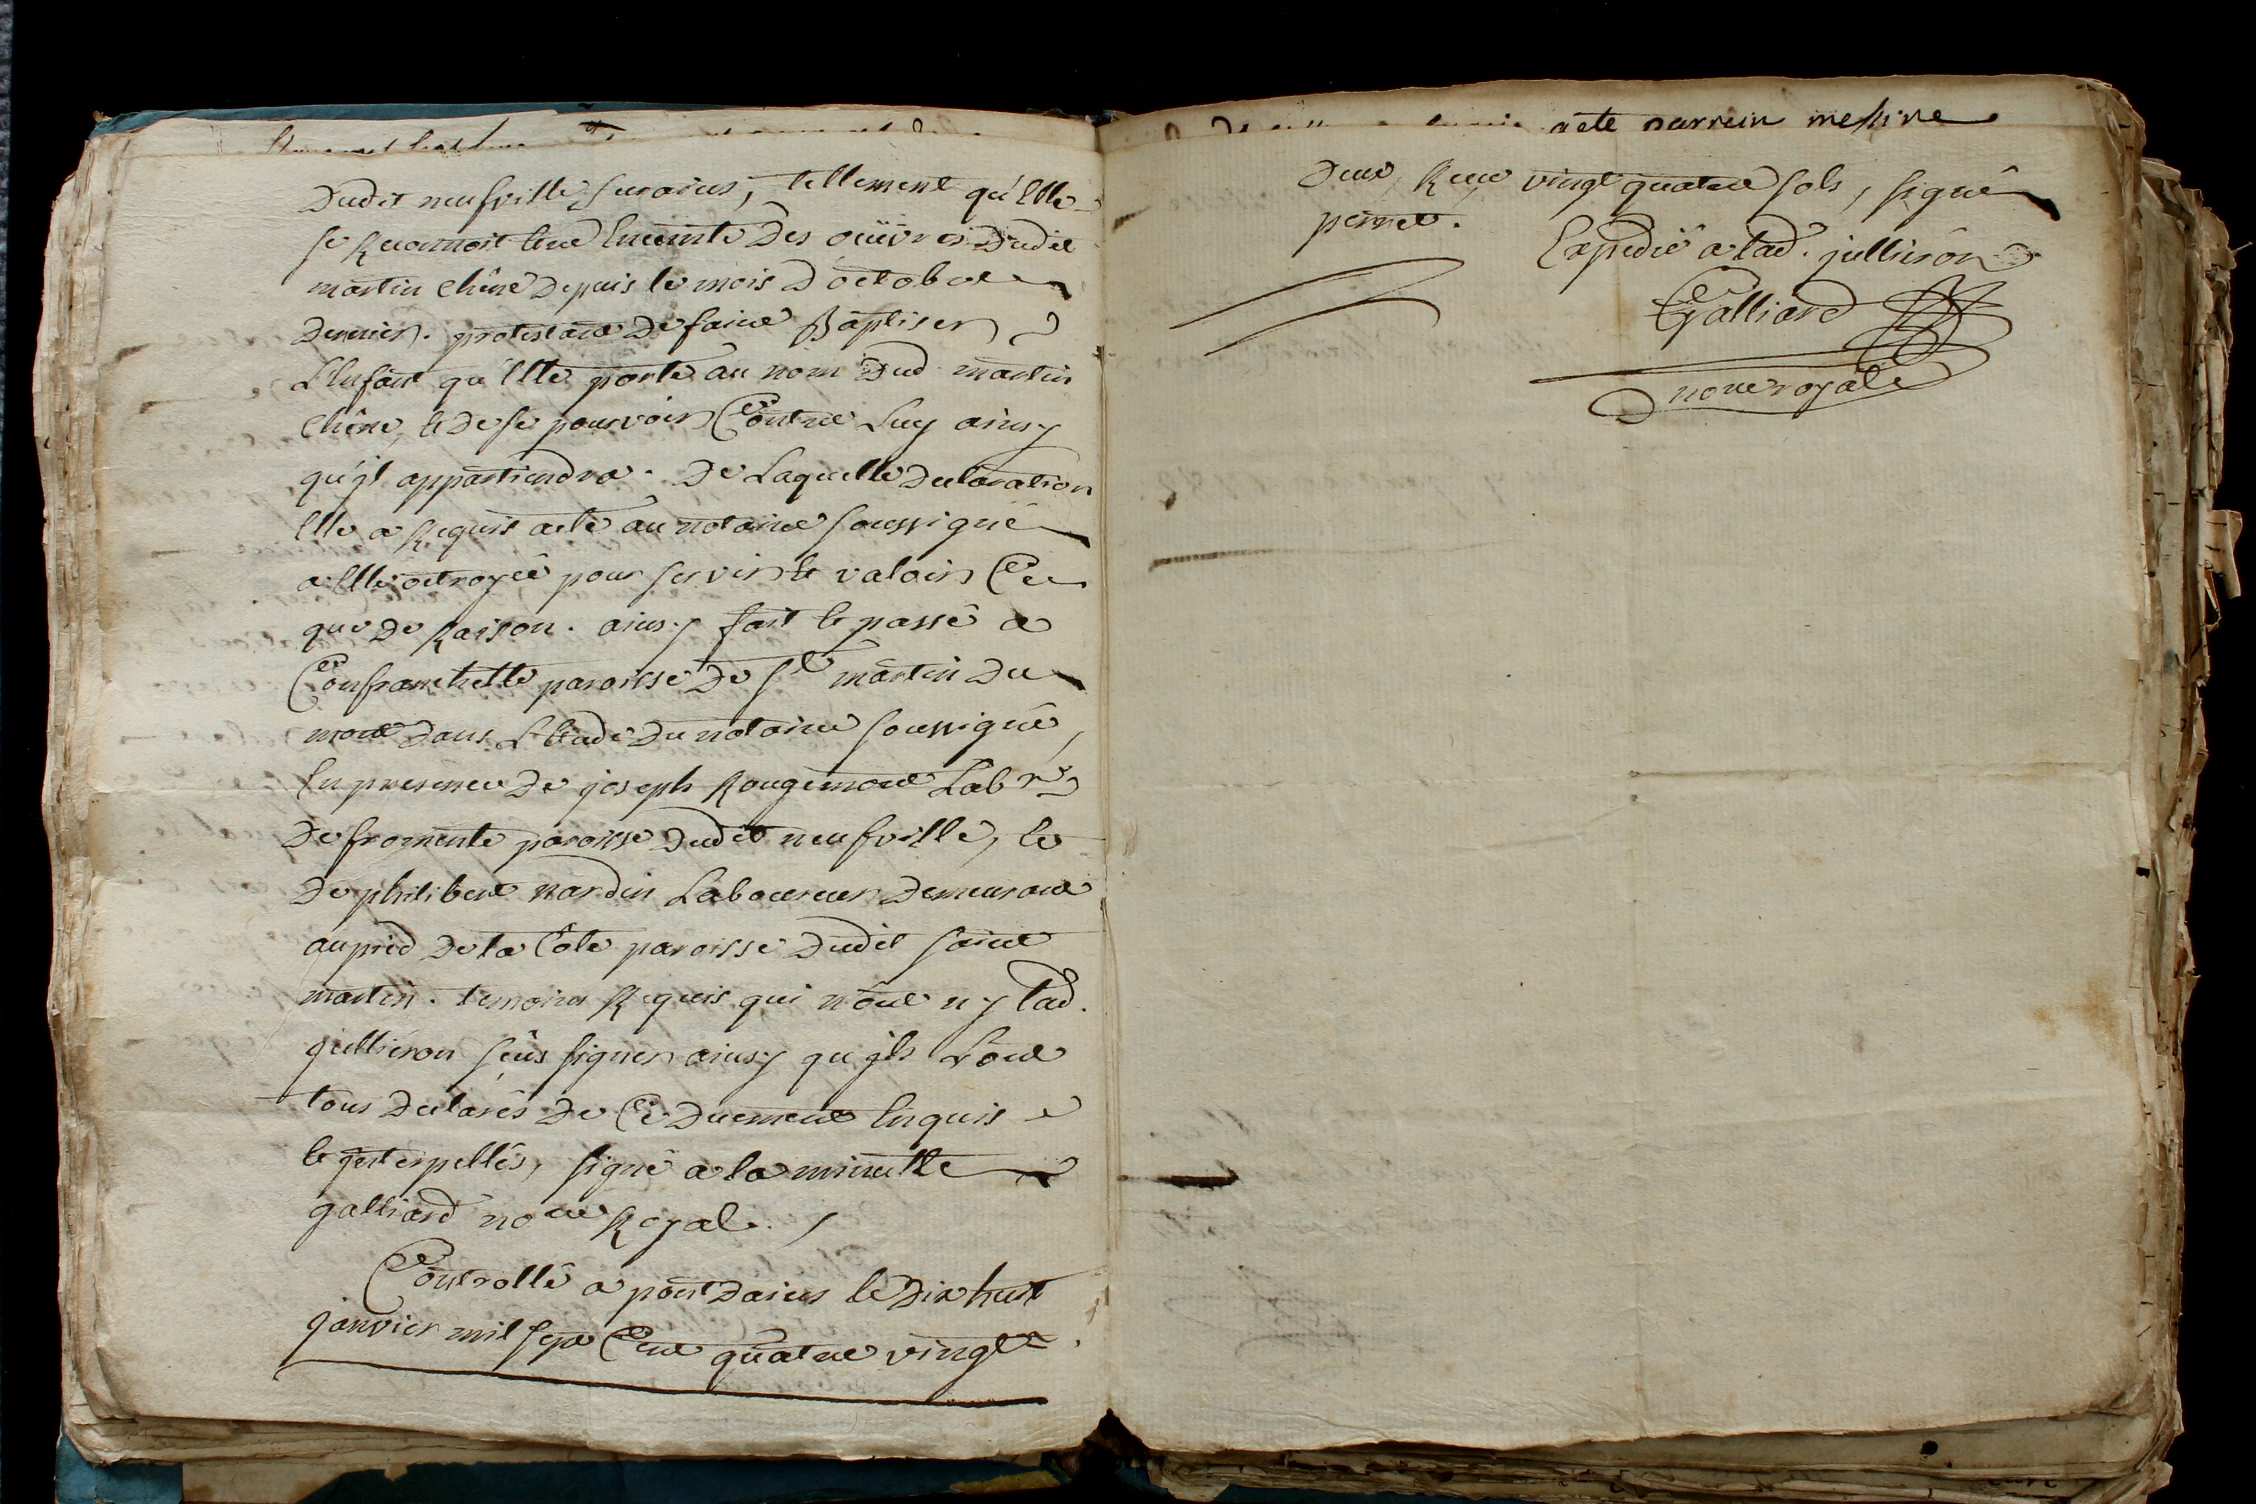 acte parrein messire
Dudit neufville surains, tellement qu'Elle
se Reconnoit Etre Enceinte Des oeuvres Dudit
martin Chêne Depuis le mois D'octobre
Dernier. protestant De faire Baptiser
L'Enfant qu'Elle porte au nom Dud. martin
Chêne, et De se pourvoir Contre Luy ainsy
qu'jl appartiendra. De Laquelle Declaration
Elle a Requis acte au notaire soussigné
a Elle octroyé pour servir et valoir Ce
que De Raison. ainsy fait et passé a
Confranchette paroisse De st martin Du
mont Dans L'Etude Du notaire soussigné,
En presence De joseph Rougemont Labr
De fromente paroisse Dudit neufville, et
De philibert nardin Laboureur Demeurant
au pied De la Côte paroisse Dudit saint
martin. temoins Requis qui n'ont ny lad.
jullieron sçus signer ainsy qu'jls L'ont
tous Declarés De Ce Duement Enquis
et jnterpellés, signé a la minutte
galliard nore Royal.
Controllé a pont Dains le Dix huit
janvier mil sept Cent quatre vingt
Deux, Reçu vingt quatre sols, signé
perret.
Expedié a lad. jullieron
Galliard
nore royal